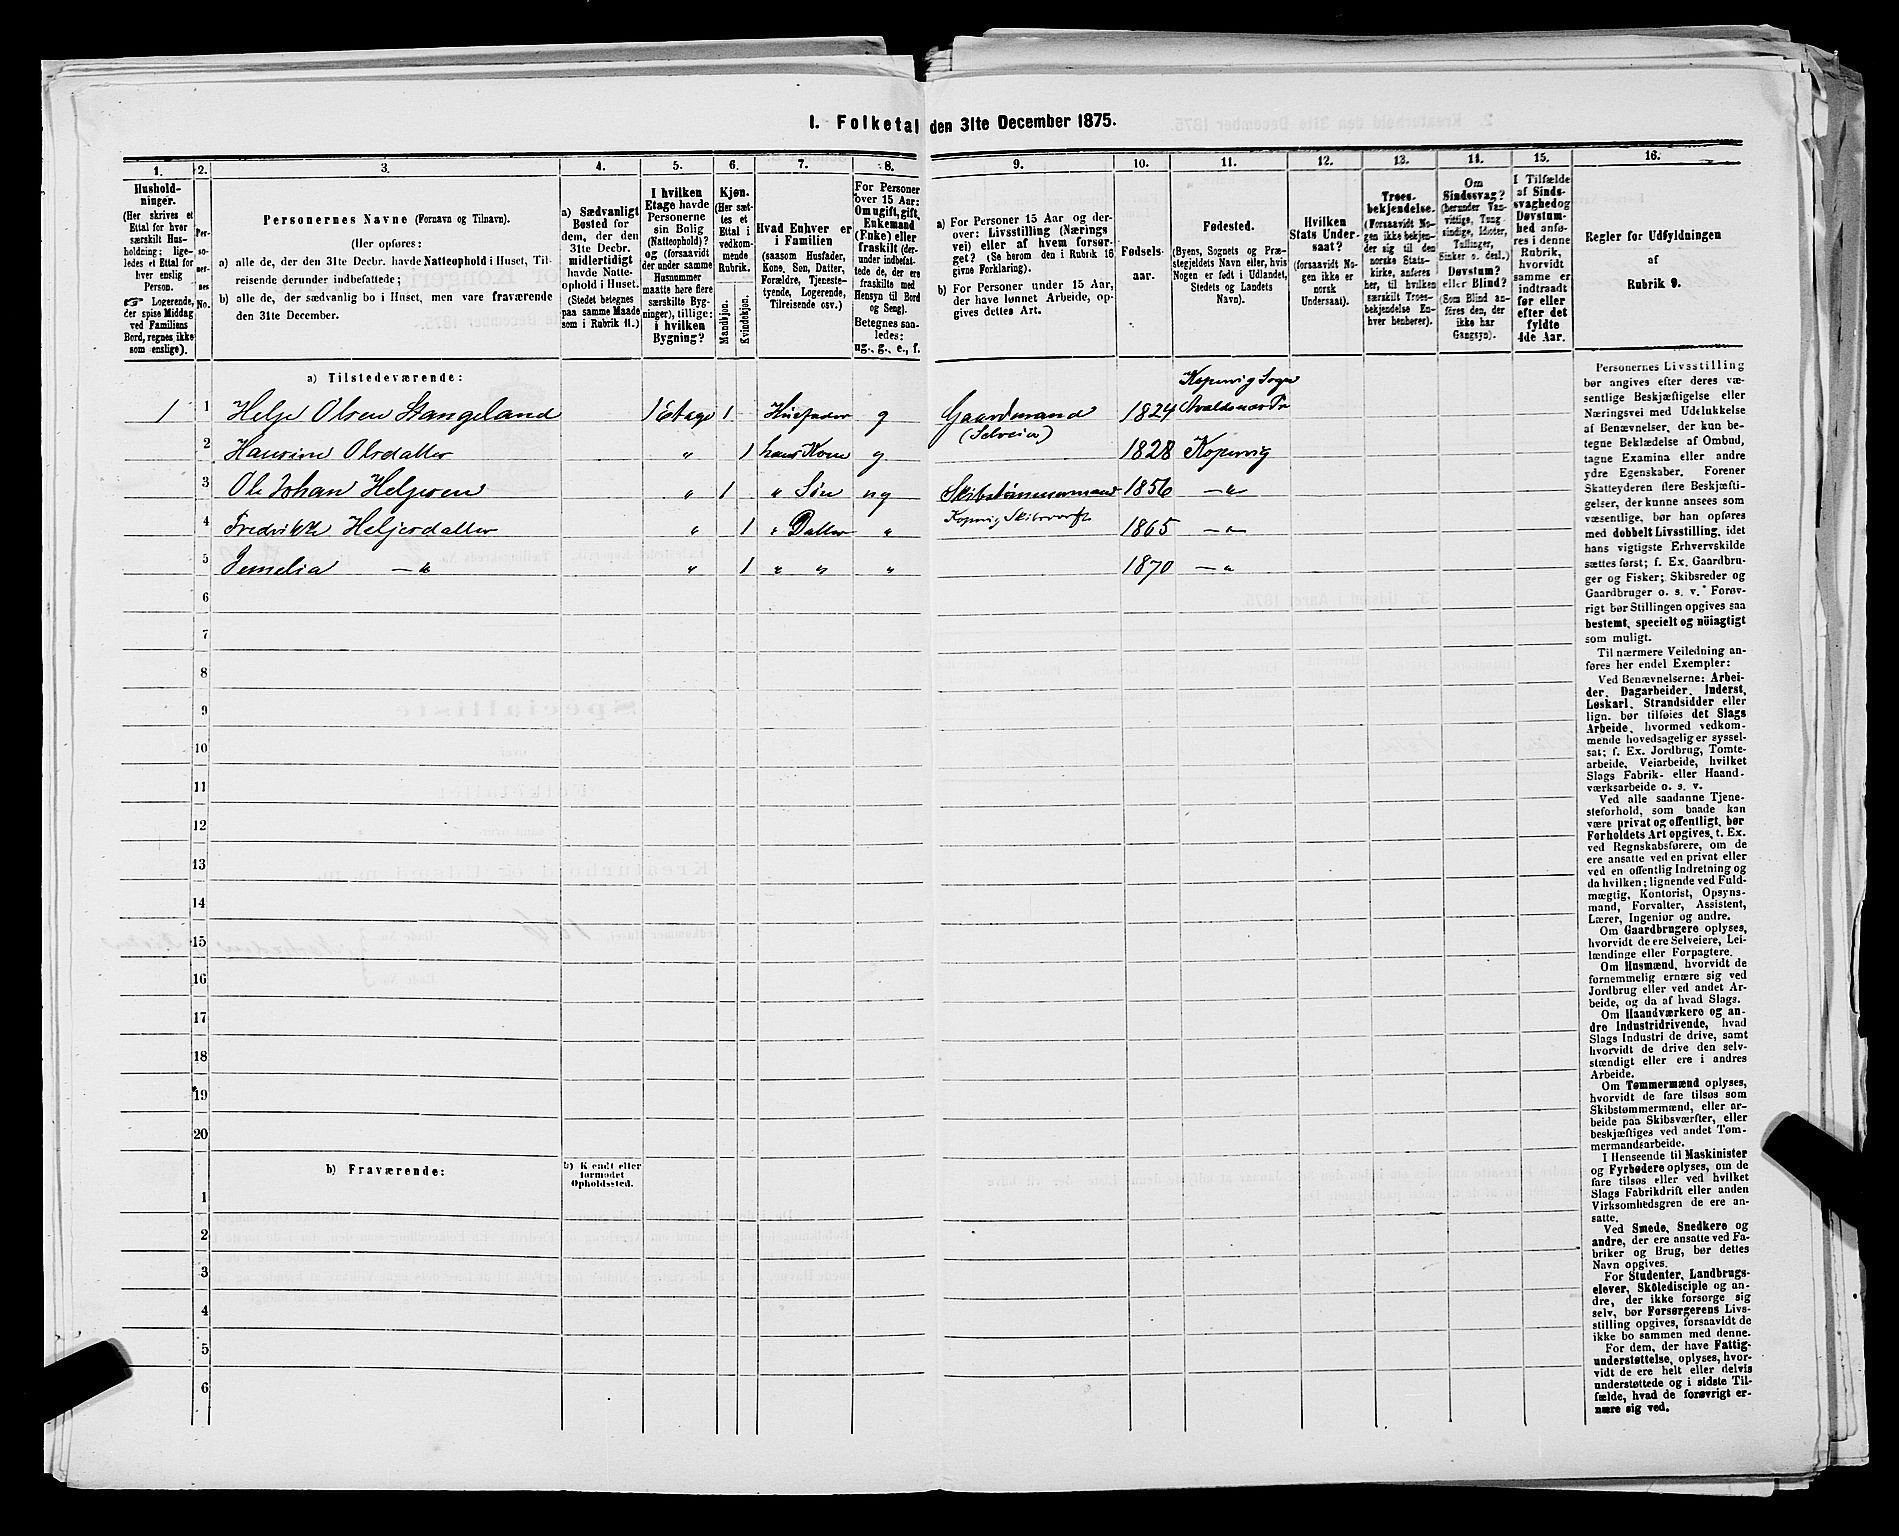 I. Folketal den 31te December 1875.
1.
2.
3.
4.
5.
6.
7.
8.
9.
10.
11.
12.
13.
14.
15.
16.
Hushold-
ninger.
(Her skrives et
Ettal for hver
særskilt Hus-
holdning; lige-
ledes et Ettal for
hver enslig
Person.
☞ Logerende,
der spise Middag
ved Familiens
Bord, regnes ikke
som enslige).
Per-
so-
ner-
nes
No.
Personernes Navne (Fornavn og Tilnavn).
(Her opføres:
a) alle de, der den 31te Decbr. havde Natteophold i Huset, Til-
reisende derunder indbefattede;
b) alle de, der sædvanlig bo i Huset, men vare fraværende
den 31te December.
a) Sædvanligt
Bosted for
dem, der den
31te Decbr.
midlertidigt
havde Natte-
ophold i Huset.
(Stedet betegnes
paa samme Maade
som i Rubrik 11.)
I hvilken
Etage havde
Personerne
sin Bolig
(Natteophold)?
og (forsaavidt
der under samme
Husnummer
maatte høre flere
særskilte Byg-
ninger), tillige:
i hvilken
Bygning?
Kjøn.
(Her sæt-
tes et
Ettal i
vedkom-
mende
Rubrik.
Mandkjøn.
Kvindekjøn.
Hvad Enhver er
i Familien
(saasom Husfader,
Kone, Søn, Datter,
Forældre, Tjeneste-
tyende, Logerende,
Tilreisende osv.)
For Personer
over 15 Aar:
Om ugift, gift,
Enkemand
(Enke) eller
fraskilt (der-
under indbefat-
tede de, der ere
fraskilte med
Hensyn til Bord
og Seng).
Betegnes saa-
ledes:
ug., g., e., f.
a) For Personer 15 Aar og der-
over: Livsstilling (Nærings
vei) eller af hvem forsør-
get? (Se herom den i Rubrik 16
givne Forklaring).
b) For Personer under 15 Aar,
der have lønnet Arbeide, op-
gives dettes Art.
Fødsels-
aar.
Fødested.
(Byens, Sognets og Præ-
stegjeldets Navn eller, hvis
Nogen er født i Udlandet,
Stedets og Landets
Navn).
Hvilken
Stats Under-
saat?
(forsaavidt No-
gen ikke er
norsk
Undersaat).
Troes-
bekjendelse.
(Forsaavidt No-
gen ikke bekjen-
der sig til den
norske Stats-
kirke, anføres
her, til hvilken
særskilt Troes-
bekjendelse En-
hver henhører).
Om
Sindssvag?
(herunder Van-
vittige, Tung-
sindige, Idioter,
Tullinger,
Sinker o. desl.)
Døvstum?
eller Blind?
(Som Blind an-
føres den, der
ikke har
Gangsyn).
I Tilfælde
af Sinds-
svaghed og
Døvstum-
hed anfø-
res i denne
Rubrik,
hvorvidt
samme er
indtraadt
før eller
efter det
fyldte
4de Aar.
Regler for Udfyldningen
af
Rubrik 9.
a) Tilstedeværende:
Kopervig Sogn
1 1 Helje Olsen Stangeland 1 Etage 1 Husfader g Gaardmand 1824 Avaldsnæs Pr
(Selveier)
2 Hansine Olsdatter „ 1 hans Kone g 1828 Kopervig
3 Ole Johan Heljesen „ 1 „ Søn ug Skibstømmermand 1856 —„
Kopervig Skibsværft
4 Fredrikke Heljesdatter „ 1 „ Datter „ 1865 —„
5 Jemelia —„ „ 1 „ „ „ 1870 —„
6
7
8
9
10
11
12
13
14
15
16
17
18
19
20
b) Fraværende:
b) Kjendt eller
formodet
Opholdssted.
1
2
3
4
5
6
Personernes Livsstilling
bør angives efter deres væ-
sentlige Beskjæftigelse eller
Næringsvei med Udelukkelse
af Benævnelser, der kun be-
tegne Beklædelse af Ombud,
tagne Examina eller andre
ydre Egenskaber. Forener
Skatteyderen flere Beskjæfti-
gelser, der kunne ansees som
væsentlige, bør han opføres
med dobbelt Livsstilling, idet
hans vigtigste Erhvervskilde
sættes først; f. Ex. Gaardbru-
ger og Fisker; Skibsreder og
Gaardbruger o. s. v. Forøv-
rigt bør Stillingen opgives saa
bestemt, specielt og nöiagtigt
som muligt.
Til nærmere Veiledning an-
føres her endel Exempler:
Ved Benævnelserne: Arbei-
der, Dagarbeider, Inderst,
Løskarl, Strandsidder eller
lign. bør tilføies det Slags
Arbeide, hvormed vedkom-
mende hovedsagelig er syssel-
sat; f. Ex. Jordbrug, Tomte-
arbeide, Veiarbeide, hvilket
Slags Fabrik- eller Haand-
værksarbeide o. s. v.
Ved alle saadanne Tjene-
steforhold, som baade kan
være privat og offentligt, bør
Forholdets Art opgives, t. Ex.
ved Regnskabsførere, om de
ere ansatte ved en privat eller
ved en offentlig Indretning og
da hvilken; lignende ved Fuld-
mægtig, Kontorist, Opsyns-
mand, Forvalter, Assistent,
Lærer, Ingeniør og andre.
Om Gaardbrugere oplyses,
hvorvidt de ere Selveiere, Lei-
lændinge eller Forpagtere.
Om Husmænd, hvorvidt de
fornemmelig ernære sig ved
Jordbrug eller ved andet Ar-
beide, og da af hvad Slags.
Om Haandværkere og an-
dre Industridrivende, hvad
Slags Industri de drive, samt
hvorvidt de drive den selv-
stændigt eller ere i andres
Arbeide.
Om Tømmermænd oplyses,
hvorvidt de fare tilsøs som
Skibstømmermænd, eller ar-
beide paa Skibsværfter, eller
beskjæftiges ved andet Tøm-
mermandsarbeide.
I Henseende til Maskinister
og Fyrbødere oplyses, om de
fare tilsøs eller ved hvilket
Slags Fabrikdrift eller anden
Virksomhedsgren de ere an-
satte.
Ved Smede, Snedkere og
andre, der ere ansatte ved Fa-
briker og Brug, bør dettes
Navn opgives.
For Studenter, Landbrugs-
elever, Skóledisciple og an-
dre, der ikke forsørge sig
selv, bør Forsørgerens Livs-
stilling opgives, forsaavidt de
ikke bo sammen med denne.
For dem, der have Fattig-
understøttelse, oplyses, hvor-
vidt de ere helt eller delvis
understøttede og i sidste Til-
fælde, hvad de forøvrigt er-
nære sig ved.